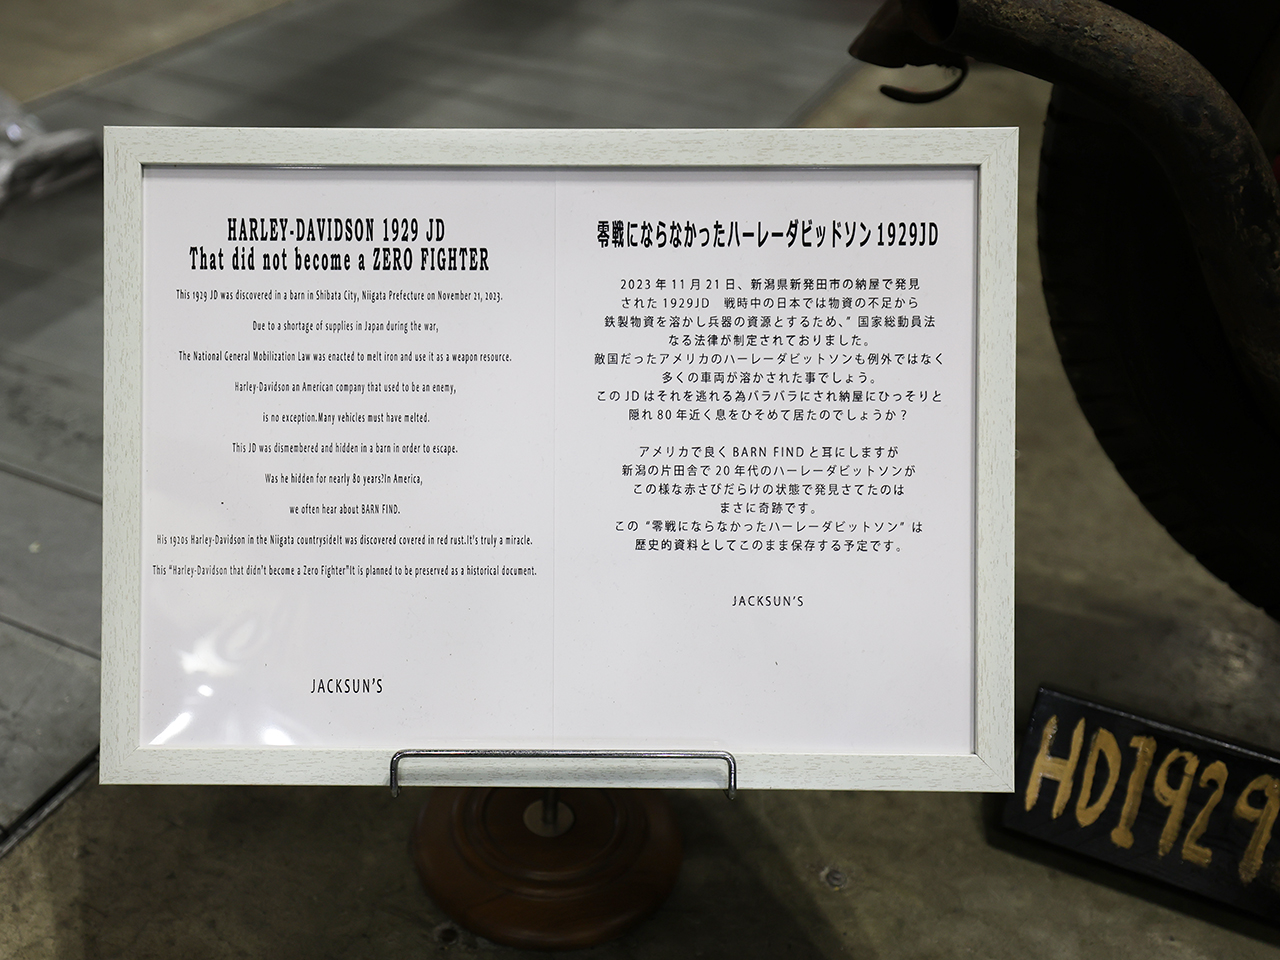 HARLEY-DAVIDSON 1929 JD
That did not become a ZERO FIGHTER
This 1929 JD was discovered in a barn in Shibata City, Niigata Prefecture on November 21, 2023.
Due to a shortage of supplies in Japan during the war,
The National General Mobilization Law was enacted to melt iron and use it as a weapon resource.
Harley-Davidson an American company that used to be an enemy,
is no exception.Many vehicles must have melted.
This JD was dismembered and hidden in a barn in order to escape.
Was he hidden for nearly 80 years?In America,
we often hear about BARN FIND.
His 1920s Harley-Davidson in the Niigata countrysideIt was discovered covered in red rust.It's truly a miracle.
This "Harley-Davidson that didn't become a Zero Fighter"It is planned to be preserved as a historical document.
JACKSUN'S
零戦にならなかったハーレーダビッドソン1929JD
2023年11月21日、新潟県新発田市の納屋で発見
された1929JD 戦時中の日本では物資の不足から
鉄製物資を溶かし兵器の資源とするため、"国家総動員法
なる法律が制定されておりました。
敵国だったアメリカのハーレーダビットソンも例外ではなく
多くの車両が溶かされた事でしょう。
このJDはそれを逃れる為バラバラにされ納屋にひっそりと
隠れ80年近く息をひそめて居たのでしょうか？
アメリカで良くBARN FINDと耳にしますが
新潟の片田舎で20年代のハーレーダビットソンが
この様な赤さびだらけの状態で発見さてたのは
まさに奇跡です。
この"零戦にならなかったハーレーダビットソン"は
歴史的資料としてこのまま保存する予定です。
JACKSUN'S
HD1929